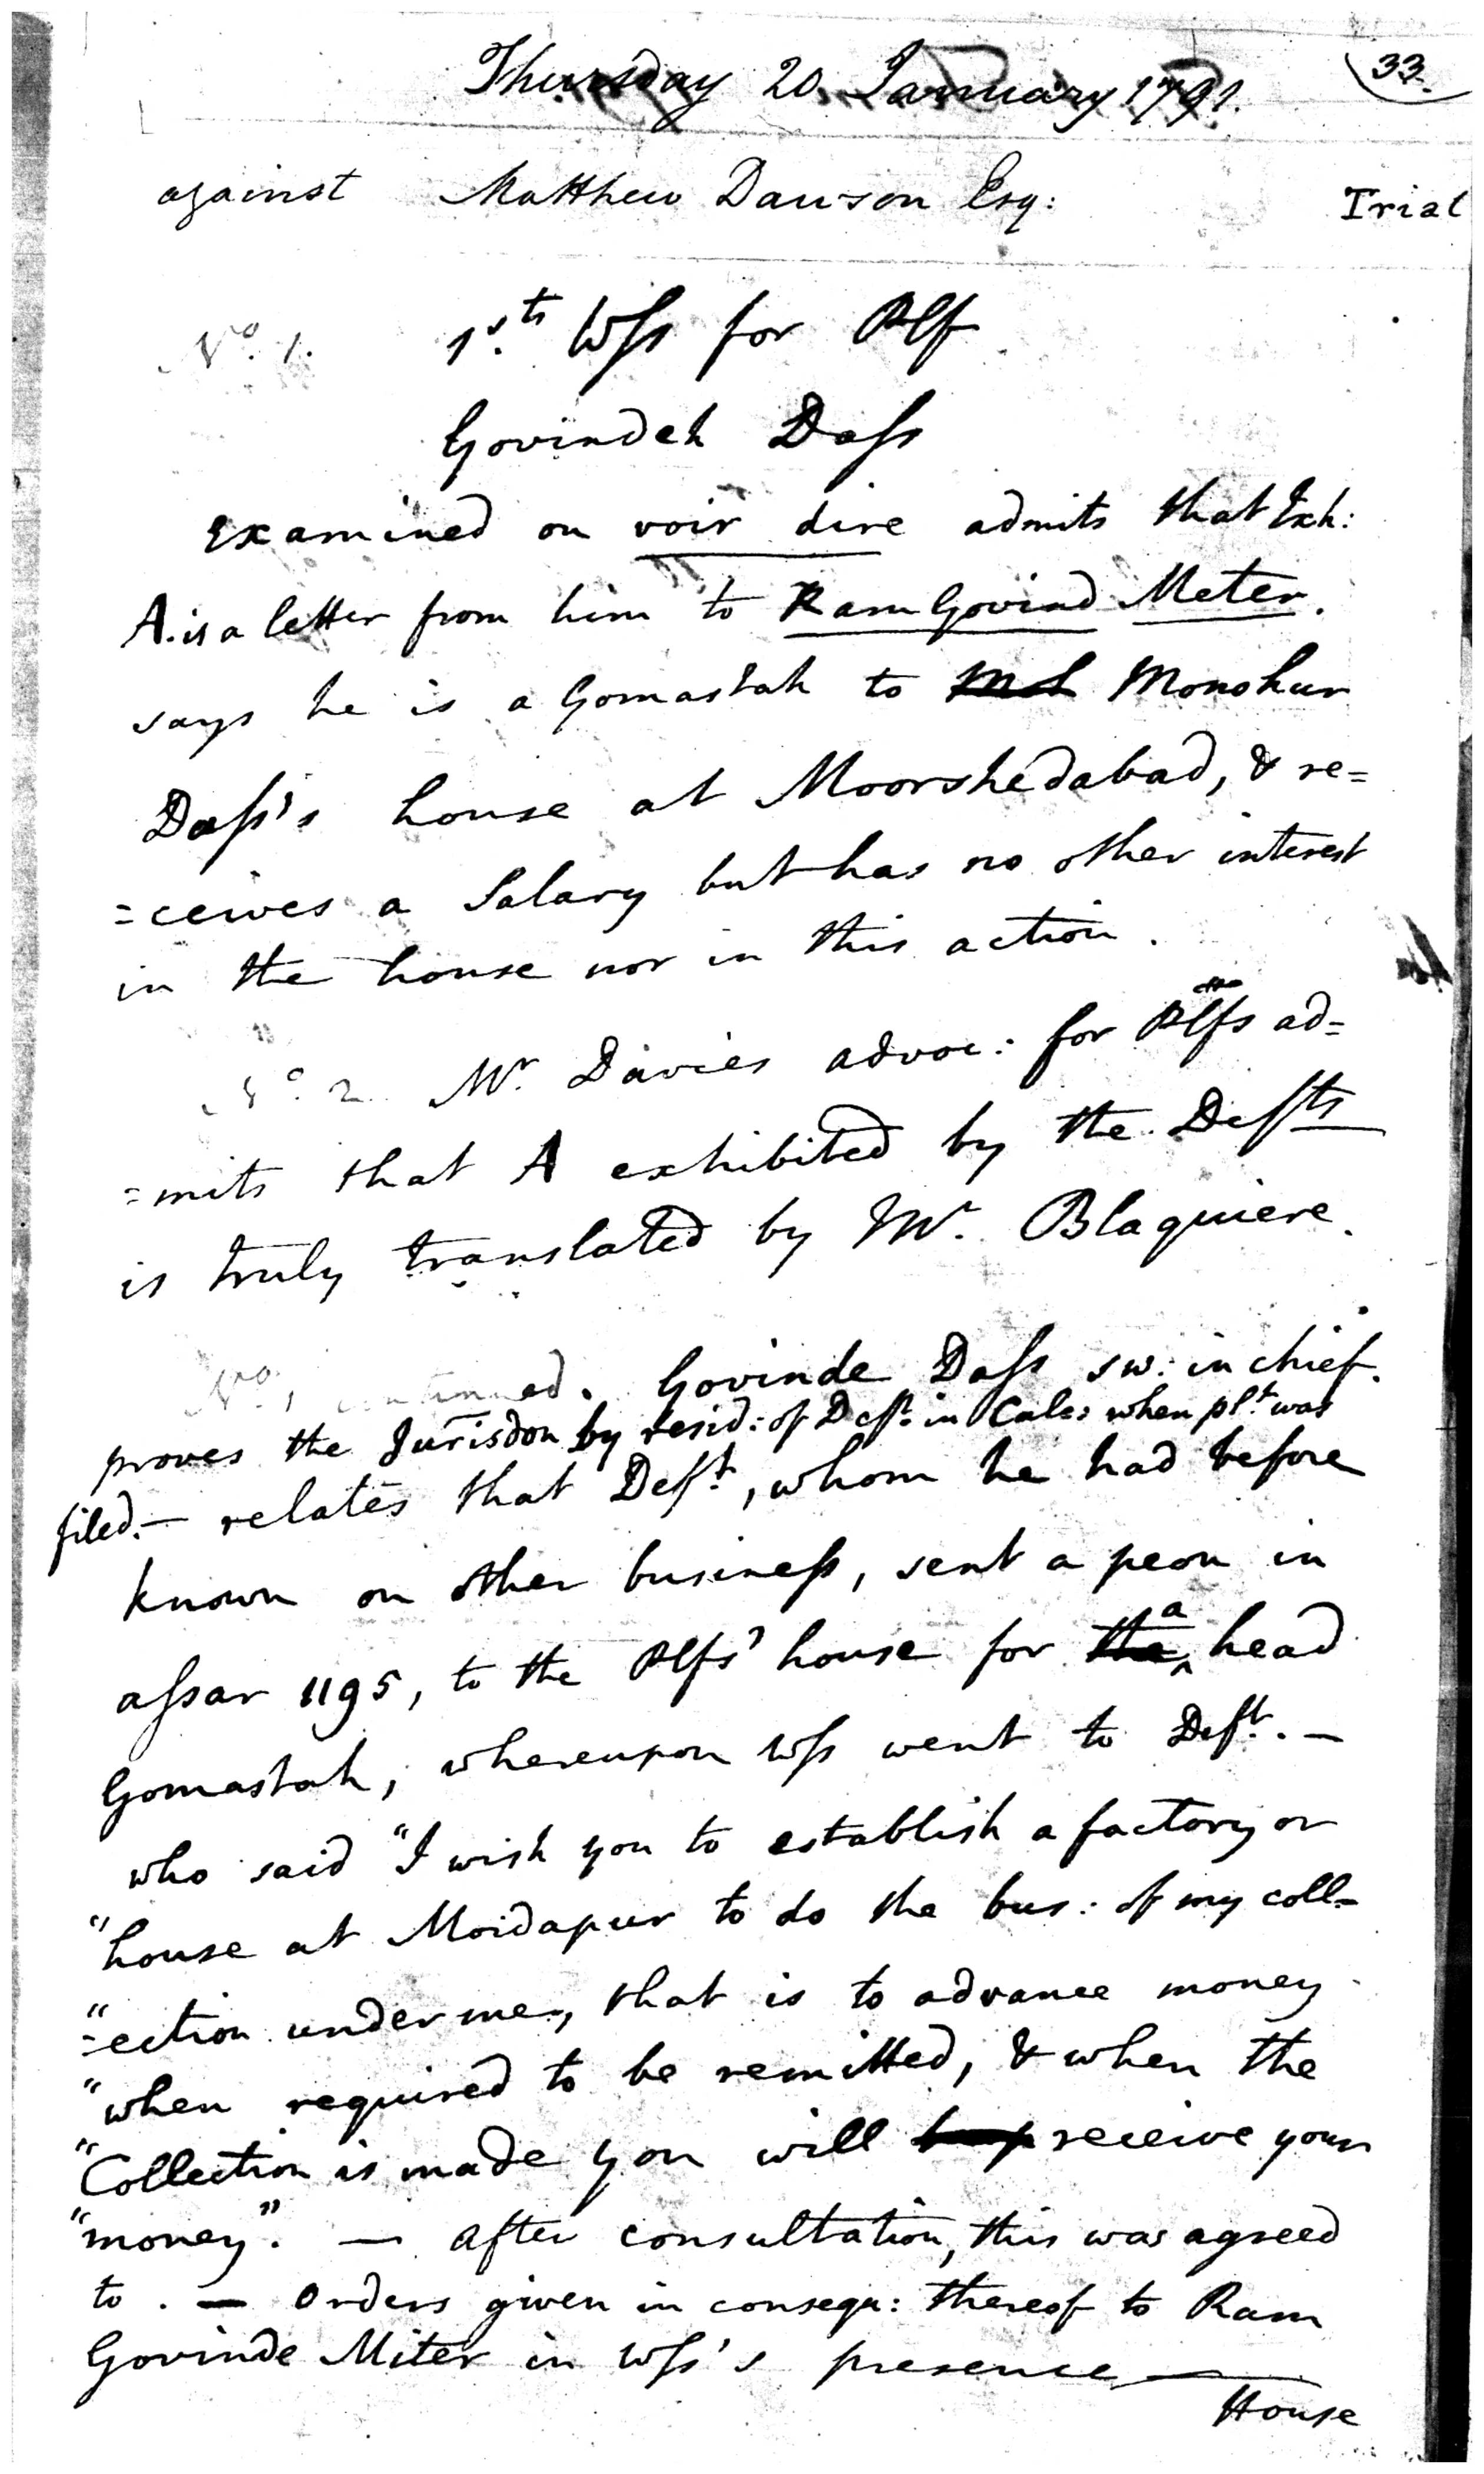 Thursday 20 January 1791.
33.
against Matthew Dawson Esq:
Trial
No. 1. 1st. Wſs for Plf
Govindeh Daſs
examined on voir dire admits that Exh:
A. is a letter from him to Ram Govind Meter.
says he is a Gomastah to Monohur
Daſs's house at Moorshedabad, & re=
=ceives a Salary but has no other interest
in the house nor in this action.
No. 2 Mr. Davies advoc: for Plfs ad=
=mits that A exhibited by the Defts
is truly translated by Mr. Blaquiere.
No. 1 continued. Govinde Daſs sw: in chief.
proves the Jurisdon by resid: of Deft. in Calc: when plt. was
filed. — relates that Deft., whom he had before
known on other buſineſs, sent a peon in
aſsar 1195, to the Plfs' house for the a head
Gomastah, whereupon Wſs went to Deft. —
who said "I wish you to establish a factory or
"house at Moidapur to do the bus: of my coll=
"=ection under me, that is to advance money
"when required to be remitted, & when the
"Collection is made you will receive your
"money". — after consultation, this was agreed
to. — Orders given in consequ: thereof to Ram
Govinde Miter in Wſs's presence —
House